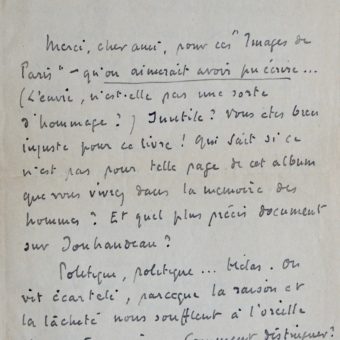 Merci, cher ami, pour ces "Images de
Paris" – qu'on aimerait avoir pu écrire...
(L'envie, n'est-elle pas une sorte
d'hommage ?) Inutile ? Vous êtes bien
injuste pour ce livre ! Qui sait si ce
n'est pas pour telle page de cet album
que vous vivrez dans la mémoire des
hommes ? Et quel plus précis document
sur Jouhandeau ?
Politique, politique... hélas. On
vit écartelé, parceque la raison et
la lâcheté nous soufflent à l'oreille
Comment distinguer ?